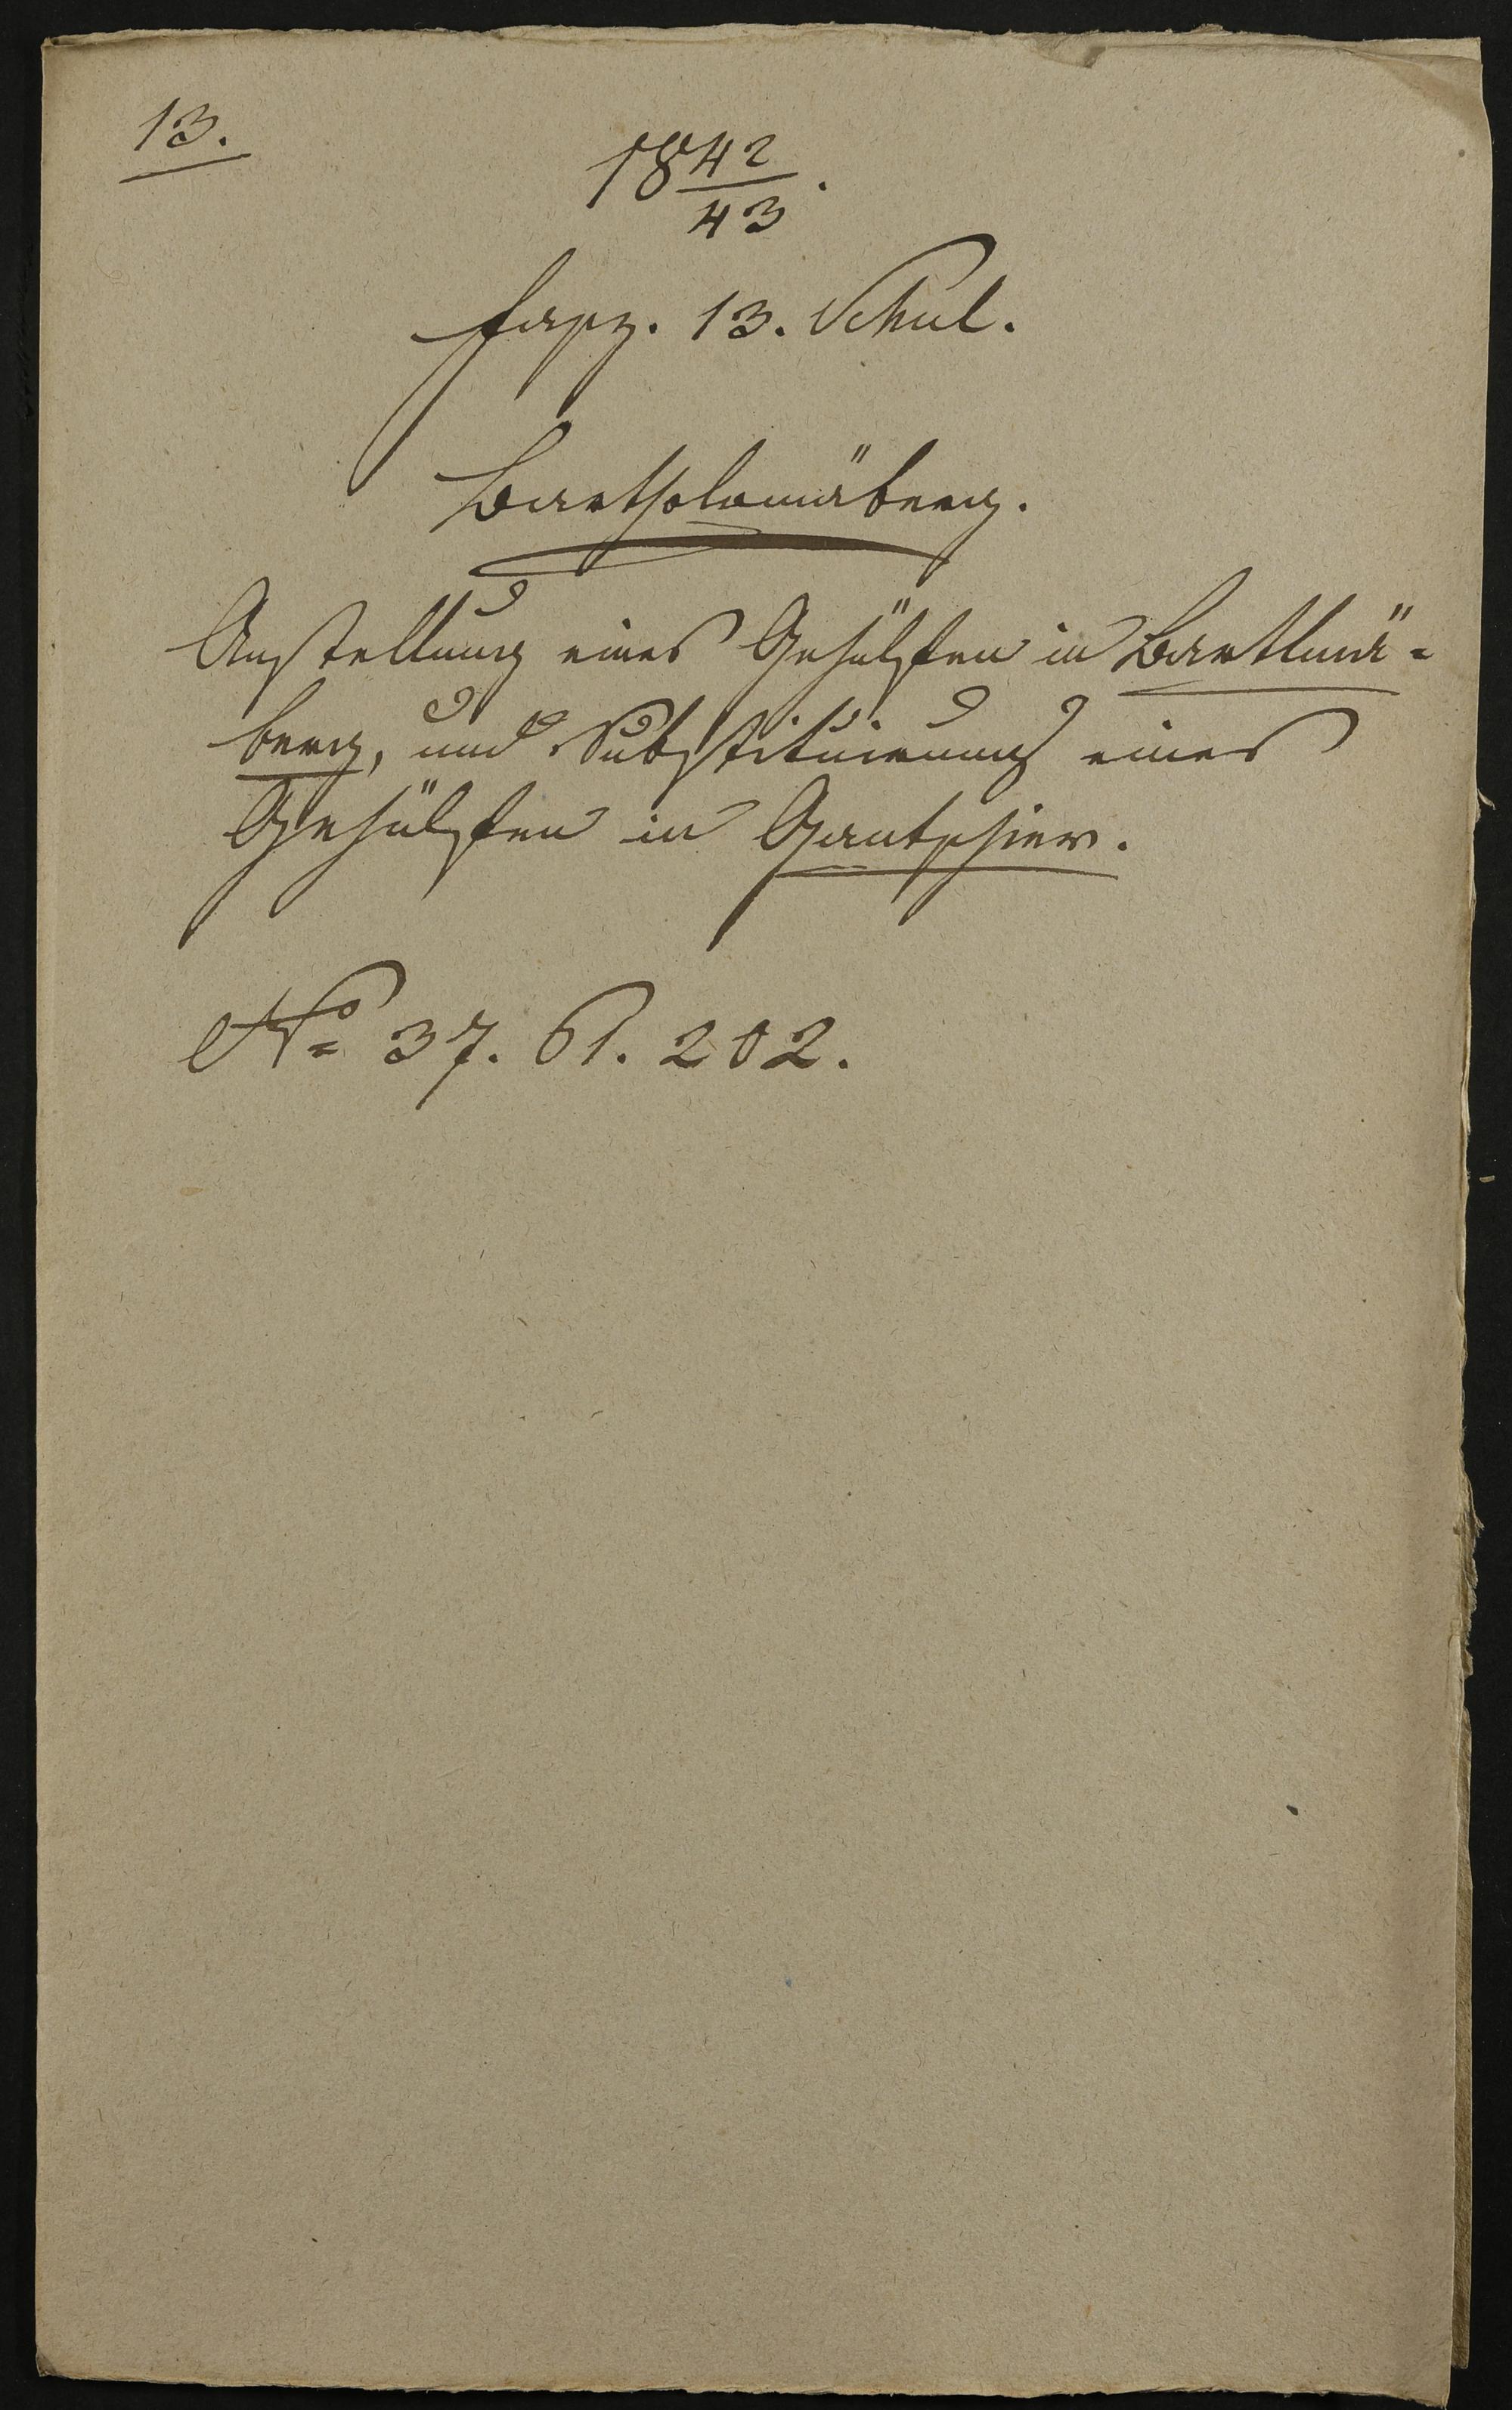 13.
18 42/43.
Fasz. 13. Schul.
Bartholomäberg.
Anstellung eines Gehülfen in Bartlmä=
berg, und Substituirung eines
Gehülfen in Gantschier.
No 37. 61. 202.